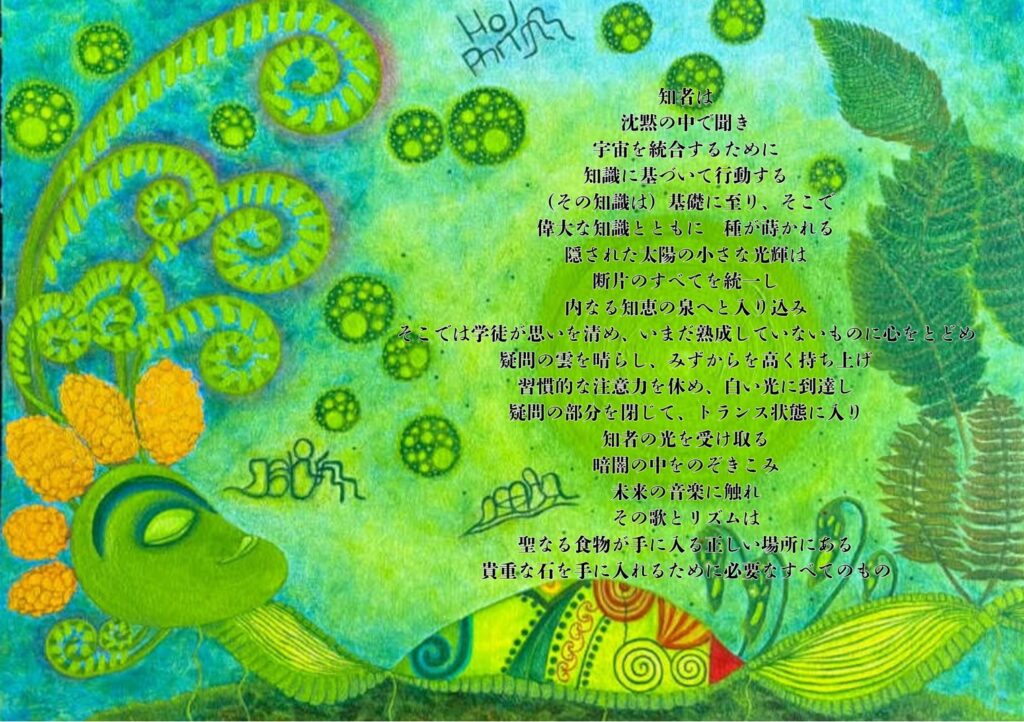 知者は
沈黙の中で聞き
宇宙を統合するために
知識に基づいて行動する
（その知識は）基礎に至り、そこで
偉大な知識とともに　種が蒔かれる
隠された太陽の小さな光輝は
断片のすべてを統一し
内なる知恵の泉へと入り込み
そこでは学徒が思いを清め、いまだ熟成していないものに心をとどめ
疑問の雲を晴らし、みずからを高く持ち上げ
習慣的な注意力を休め、白い光に到達し
疑問の部分を閉じて、トランス状態に入り
知者の光を受け取る
暗闇の中をのぞきこみ
未来の音楽に触れ
その歌とリズムは
聖なる食物が手に入る正しい場所にある
貴重な石を手に入れるために必要なすべてのもの